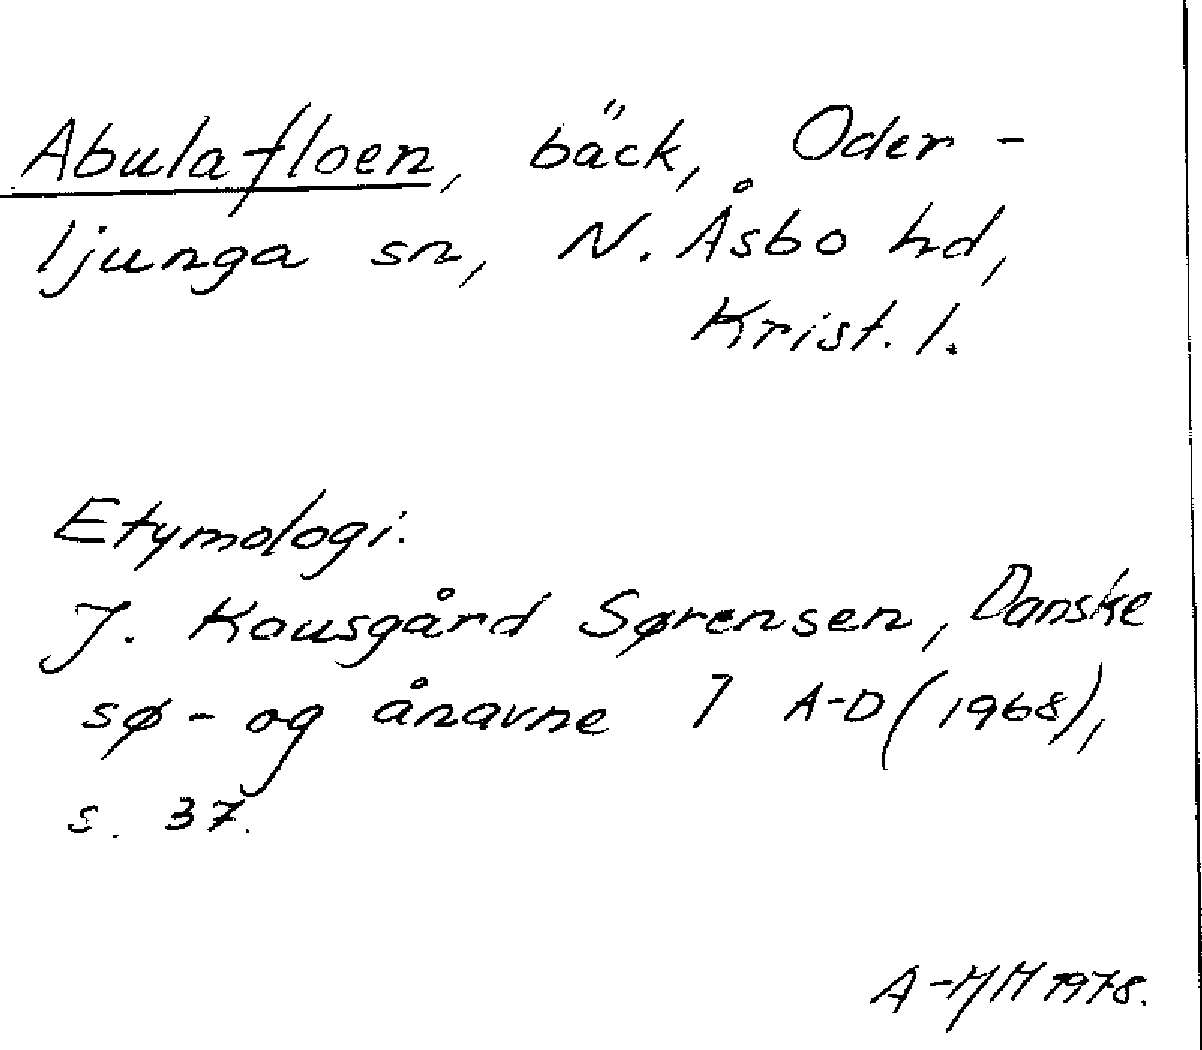 Abulafloen, bäck, Oder-
ljunga sn, N. Åsbo hd,
Krist. l.
Etymologi:
J. Kousgård Sørensen, Danske
sø- og ånavne 1 A-D (1968),
s. 37.
A-MH 1978.